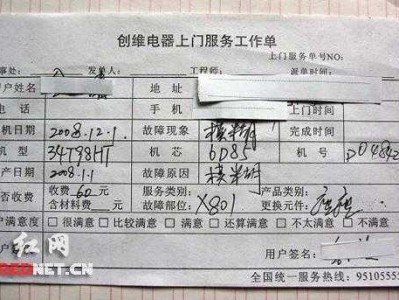 创维电器上门服务工作单
上门服务单号NO:
事处: 发单人: 工程师: 派单时间:
户姓名 地址
电话 手机 上门时间
机日期 2008.12.1. 故障现象 模糊 完成时间
机型 34T98HT 机芯 6D85 机号
产日期 2008.1.1 故障原因 模糊
否收费 收费60元 服务类别: 产品类别:
含材料费 元 故障部位: X801 更换元件:
户满意度 □很满意 □比较满意 □满意 □还算满意 □不太满意 □不满意
用户签名:
红网
REDNET.CN
全国统一服务热线: 95105555